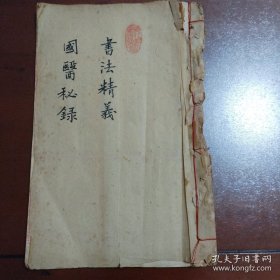 書法精義
國醫秘錄
孔夫子旧书网